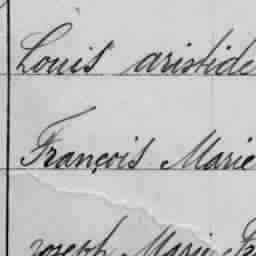 Louis aristide
François Marie
Joseph Marie Fr